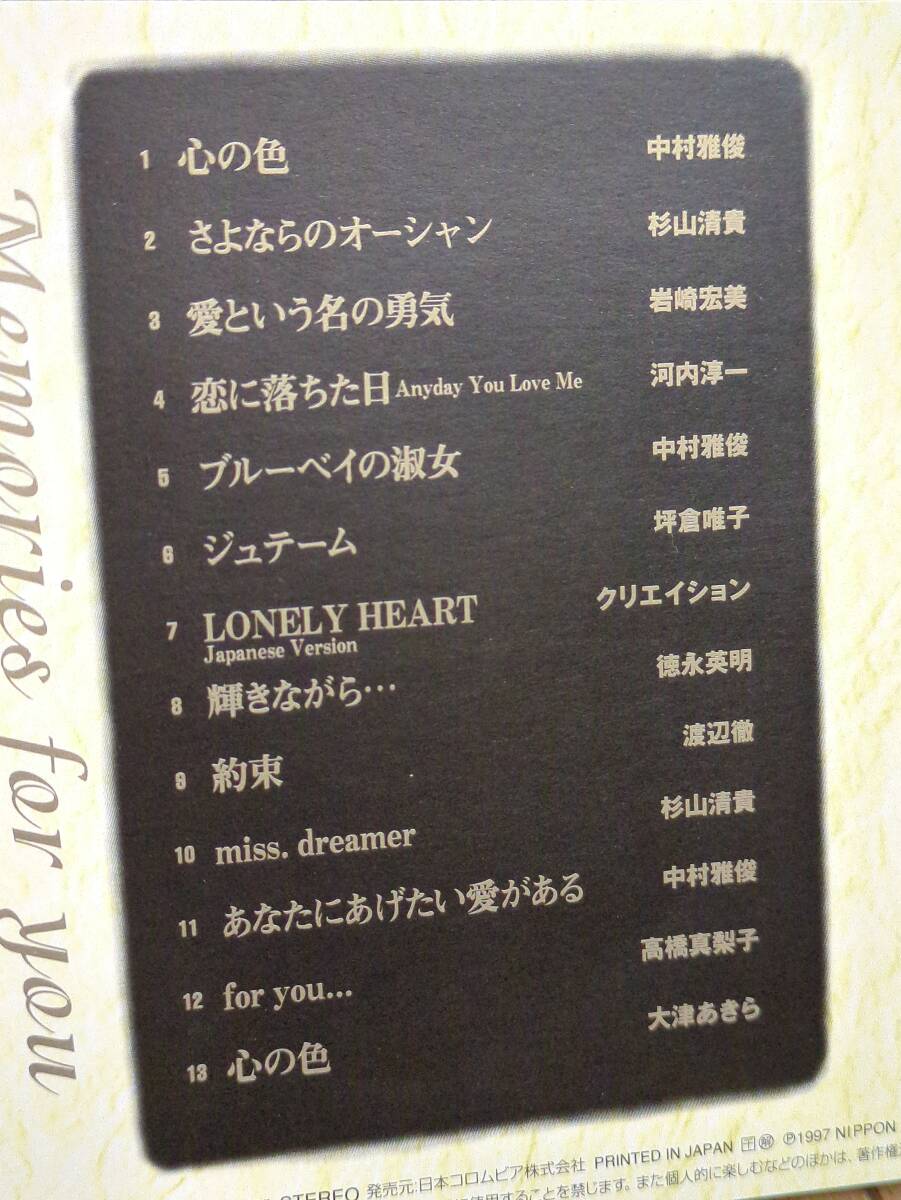 Memories for you
1 心の色 中村雅俊
2 さよならのオーシャン 杉山清貴
3 愛という名の勇気 岩崎宏美
4 恋に落ちた日 Anyday You Love Me 河内淳一
5 ブルーベイの淑女 中村雅俊
6 ジュテーム 坪倉唯子
7 LONELY HEART クリエイション
Japanese Version
8 輝きながら… 徳永英明
9 約束 渡辺徹
10 miss. dreamer 杉山清貴
11 あなたにあげたい愛がある 中村雅俊
12 for you... 高橋真梨子
13 心の色 大津あきら
STEREO 発売元:日本コロムビア株式会社 PRINTED IN JAPAN ℗1997 NIPPON
使用することを禁じます。また個人的に楽しむなどのほかは、著作権